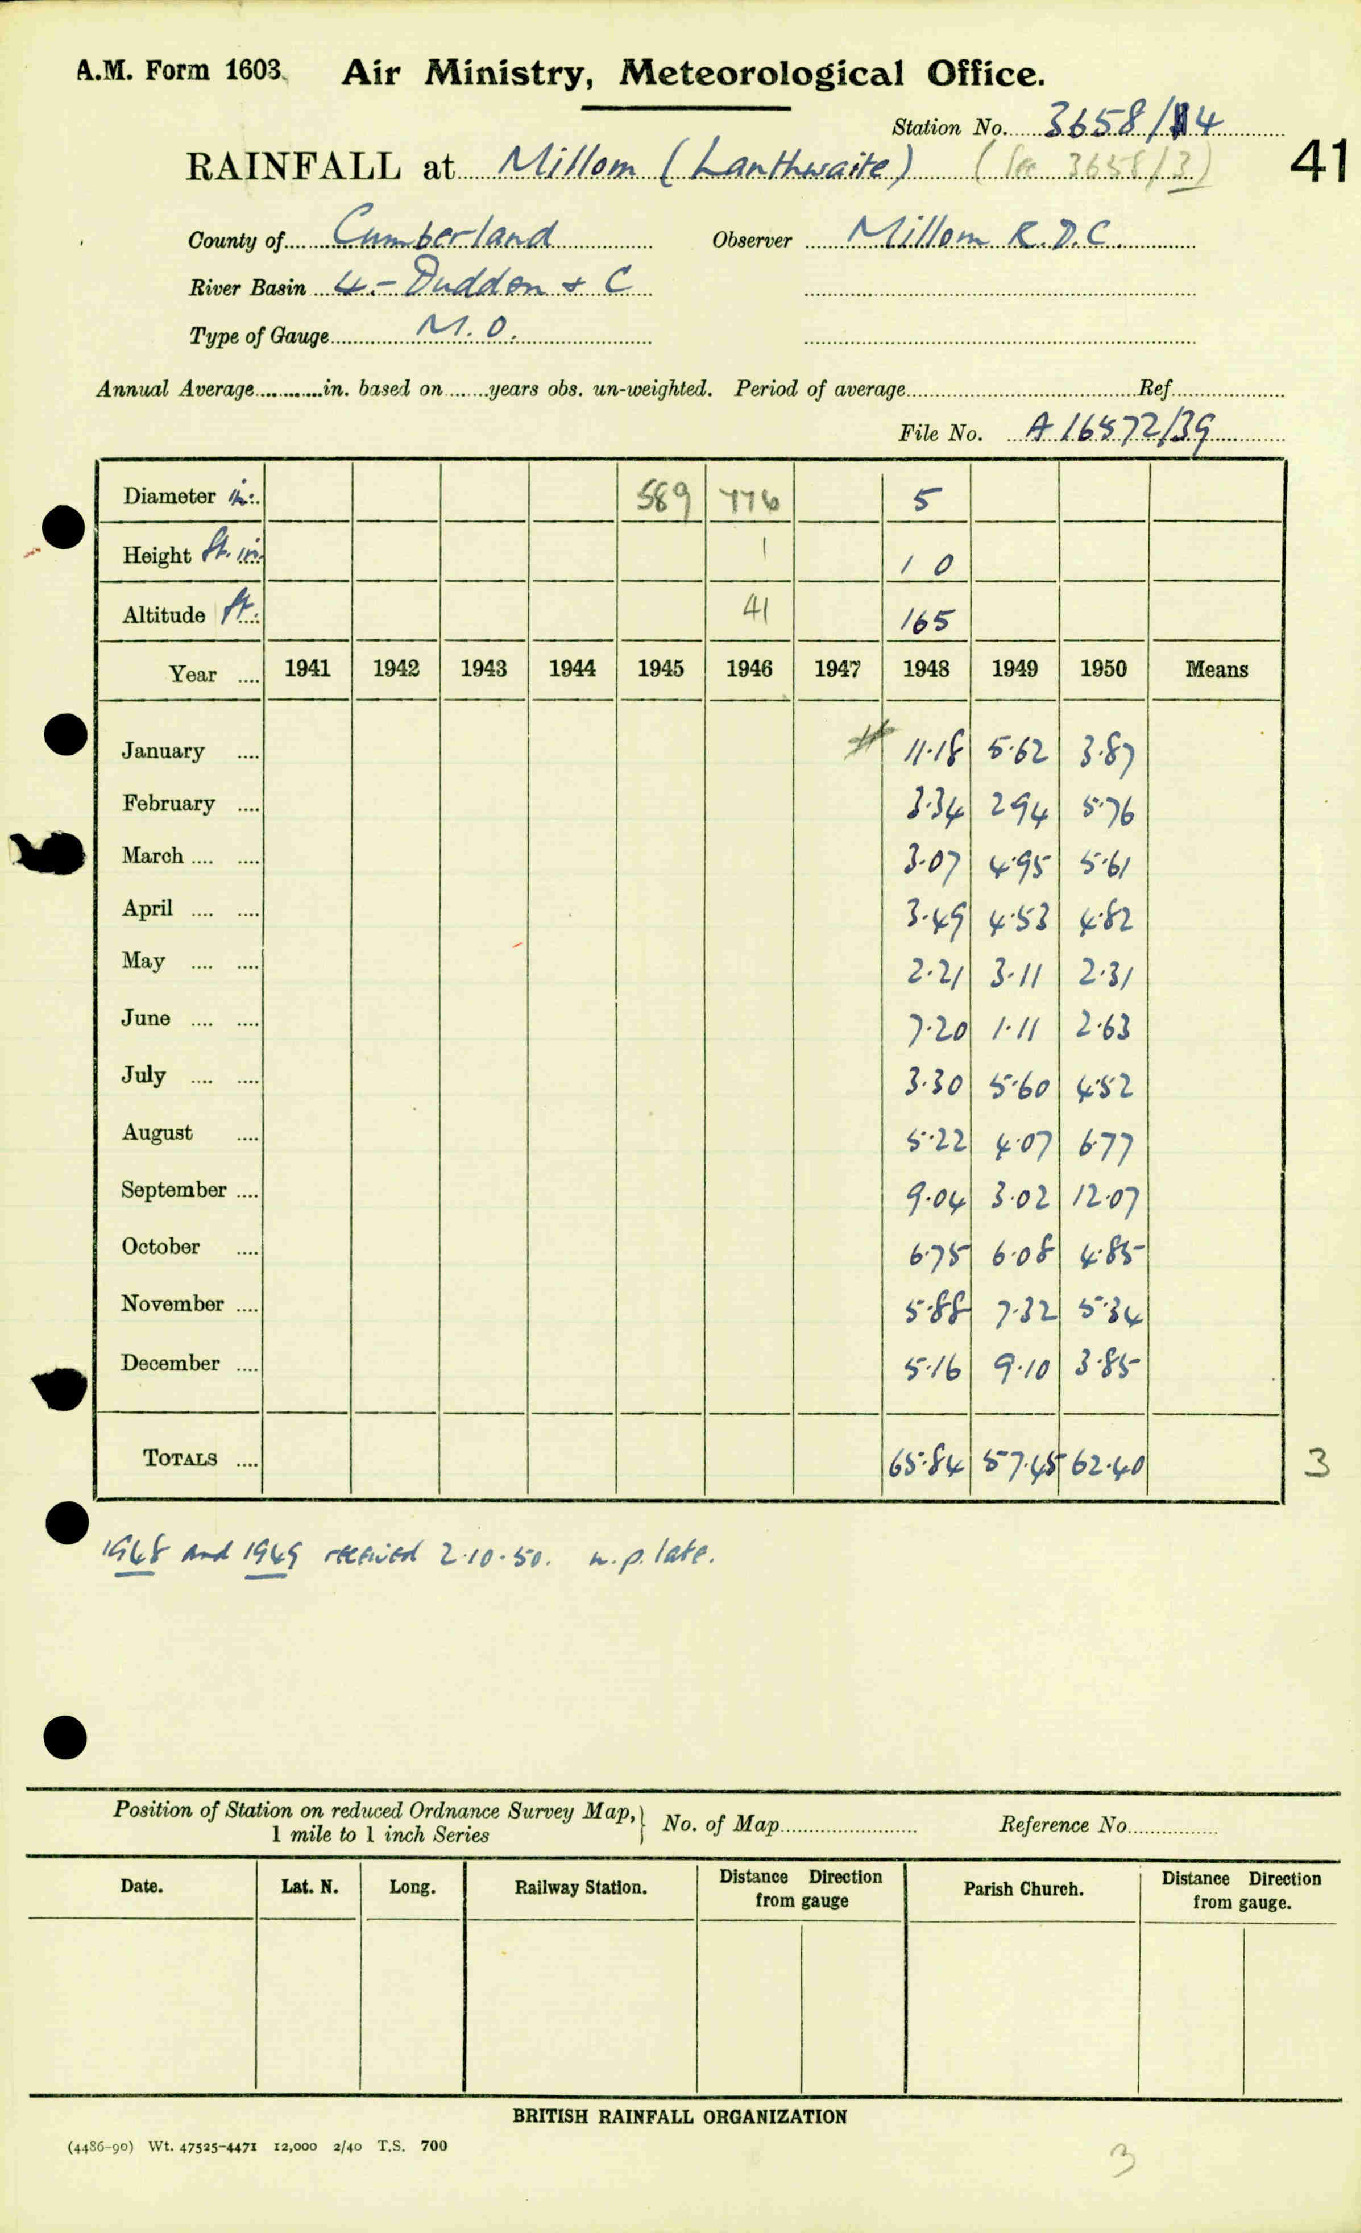 A.M. Form 1603. Air Ministry, Meteorological Office.
Station No. 3658/14
RAINFALL at Millom (Lanthwaite) (for 3658/3)
41
County of Cumberland Observer Millom R.D.C.
River Basin 4.- Duddon & C
Type of Gauge M.O.
Annual Average in. based on years obs. un-weighted. Period of average Ref.
File No. A 16572/39
Diameter in. 589 776 5
Height ft. in. 1 1 0
Altitude ft. 41 165
Year 1941 1942 1943 1944 1945 1946 1947 1948 1949 1950 Means
January 11.18 5.62 3.87
February 3.34 2.94 5.76
March 3.07 4.95 5.61
April 3.49 4.53 4.82
May 2.21 3.11 2.31
June 7.20 1.11 2.63
July 3.30 5.60 4.52
August 5.22 4.07 6.77
September 9.04 3.02 12.07
October 6.75 6.08 4.85
November 5.88 7.32 5.34
December 5.16 9.10 3.85
TOTALS 65.84 57.45 62.40
3
1948 and 1949 received 2.10.50. n.p. late.
Position of Station on reduced Ordnance Survey Map, } No. of Map Reference No.
1 mile to 1 inch Series
Date. Lat. N. Long. Railway Station. Distance Direction from gauge Parish Church. Distance Direction from gauge.
BRITISH RAINFALL ORGANIZATION
(4486-90) Wt. 47525-4471 12,000 2/40 T.S. 700
3